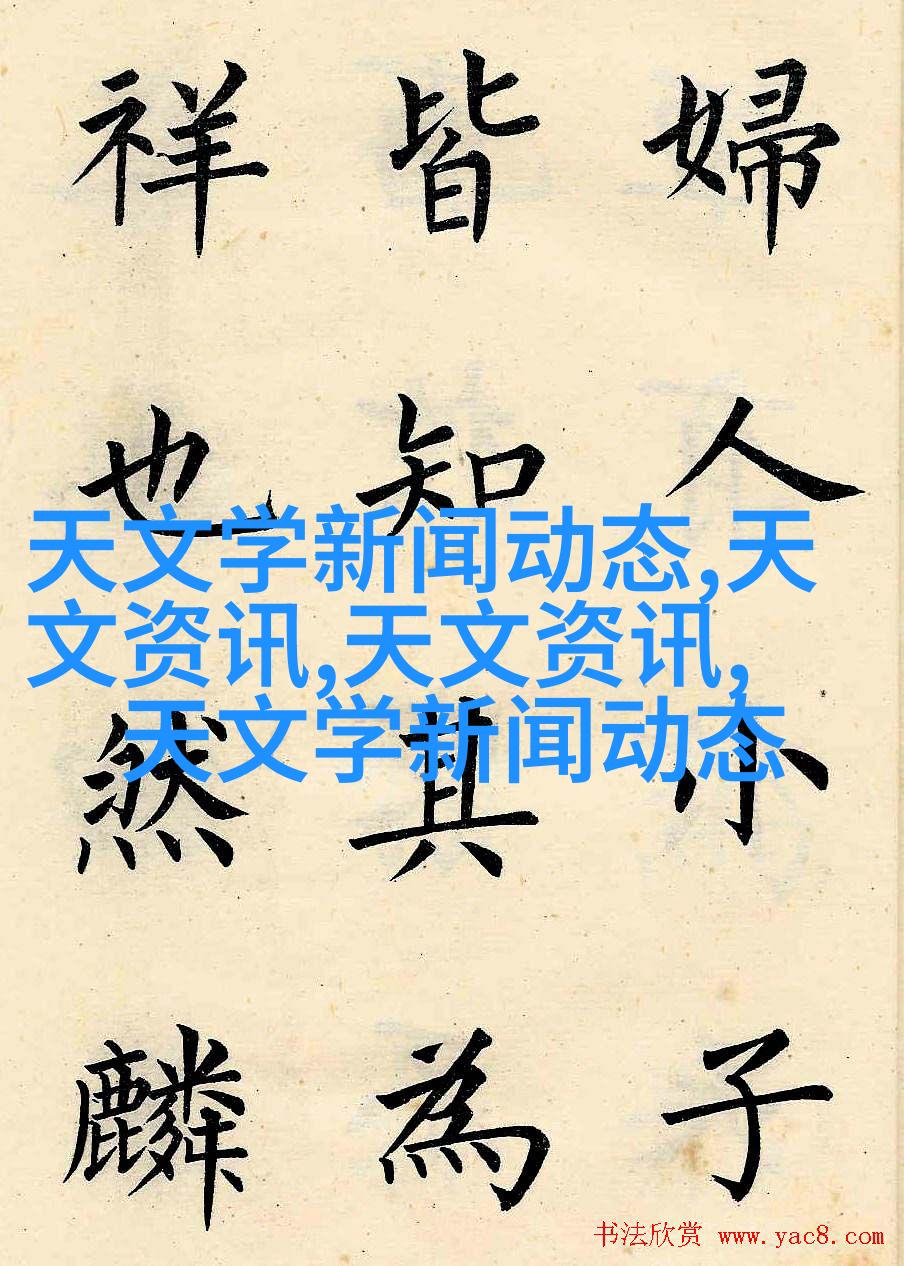 婦人小子
皆知其為
祥也然麟
天文学新闻动态,天
文资讯,天文资讯,
天文学新闻动态
书法欣赏 www.yac8.com